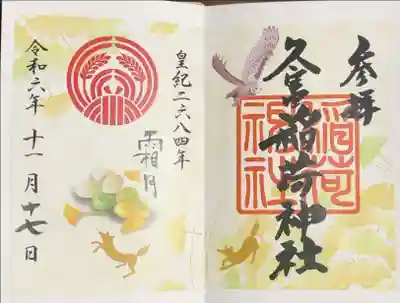 参拝
久富稲荷神社
稲荷
神社
皇紀二六八四年
霜月
令和六年 十一月十七日